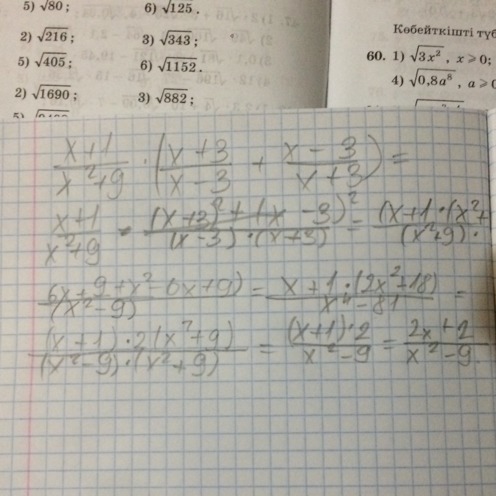 5) √80; 6) √125.
2) √216; 3) √343;
5) √405; 6) √1152.
2) √1690; 3) √882;
Көбейткішті түб
60. 1) √3x², x ⩾ 0;
4) √0,8a⁸, a ⩾ 0
(x+1)/(x²+9) · ((x+3)/(x-3) + (x-3)/(x+3)) =
(x+1)/(x²+9) · ((x+3)²+(x-3)²)/((x-3)·(x+3)) = (x+1·(x²+)/((x²+9)·
(6x+9+x²-6x+9)/((x²-9) = (x+1·(2x²+18))/(x⁴-81) =
((x+1)·2(x²+9))/((x²-9)·(x²+9)) = ((x+1)·2)/(x²-9) = (2x+2)/(x²-9)